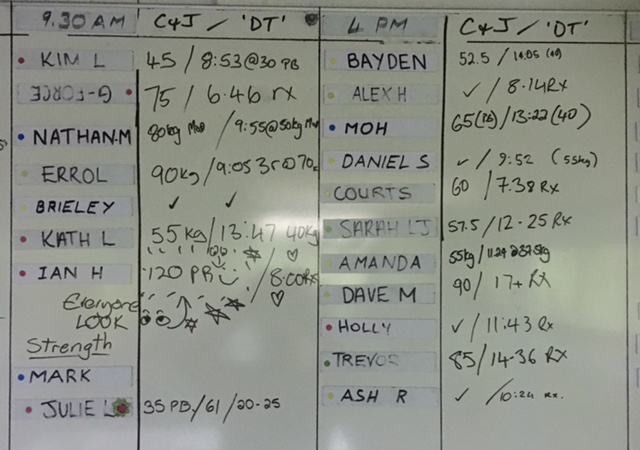 9.30 AM C&J / 'DT'
KIM L 45 / 8:53@30 PB
G-FORCE 75 / 6.46 rx
NATHAN.M 80kg / 9:55@50kg
ERROL 90kg / 9:05 3r@70k
BRIELEY ✓ ✓
KATH L 55kg / 13:47 40kg
IAN H 120 PB / 8:00RX
Everyone
LOOK
Strength
MARK
JULIE L 35 PB / 61 / 20-25
4 PM C&J / 'DT'
BAYDEN 52.5 / 14:05
ALEX H ✓ / 8.14Rx
MOH 65(PB) / 13:22(40)
DANIEL S ✓ / 9:52 (55kg)
COURTS 60 / 7.38 Rx
SARAH LJ 57.5 / 12-25 Rx
AMANDA 55kg /
DAVE M 90 / 17+ Rx
HOLLY ✓ / 11:43 Rx
TREVOR 85 / 14-36 RX
ASH R ✓ / 10:24 Rx.